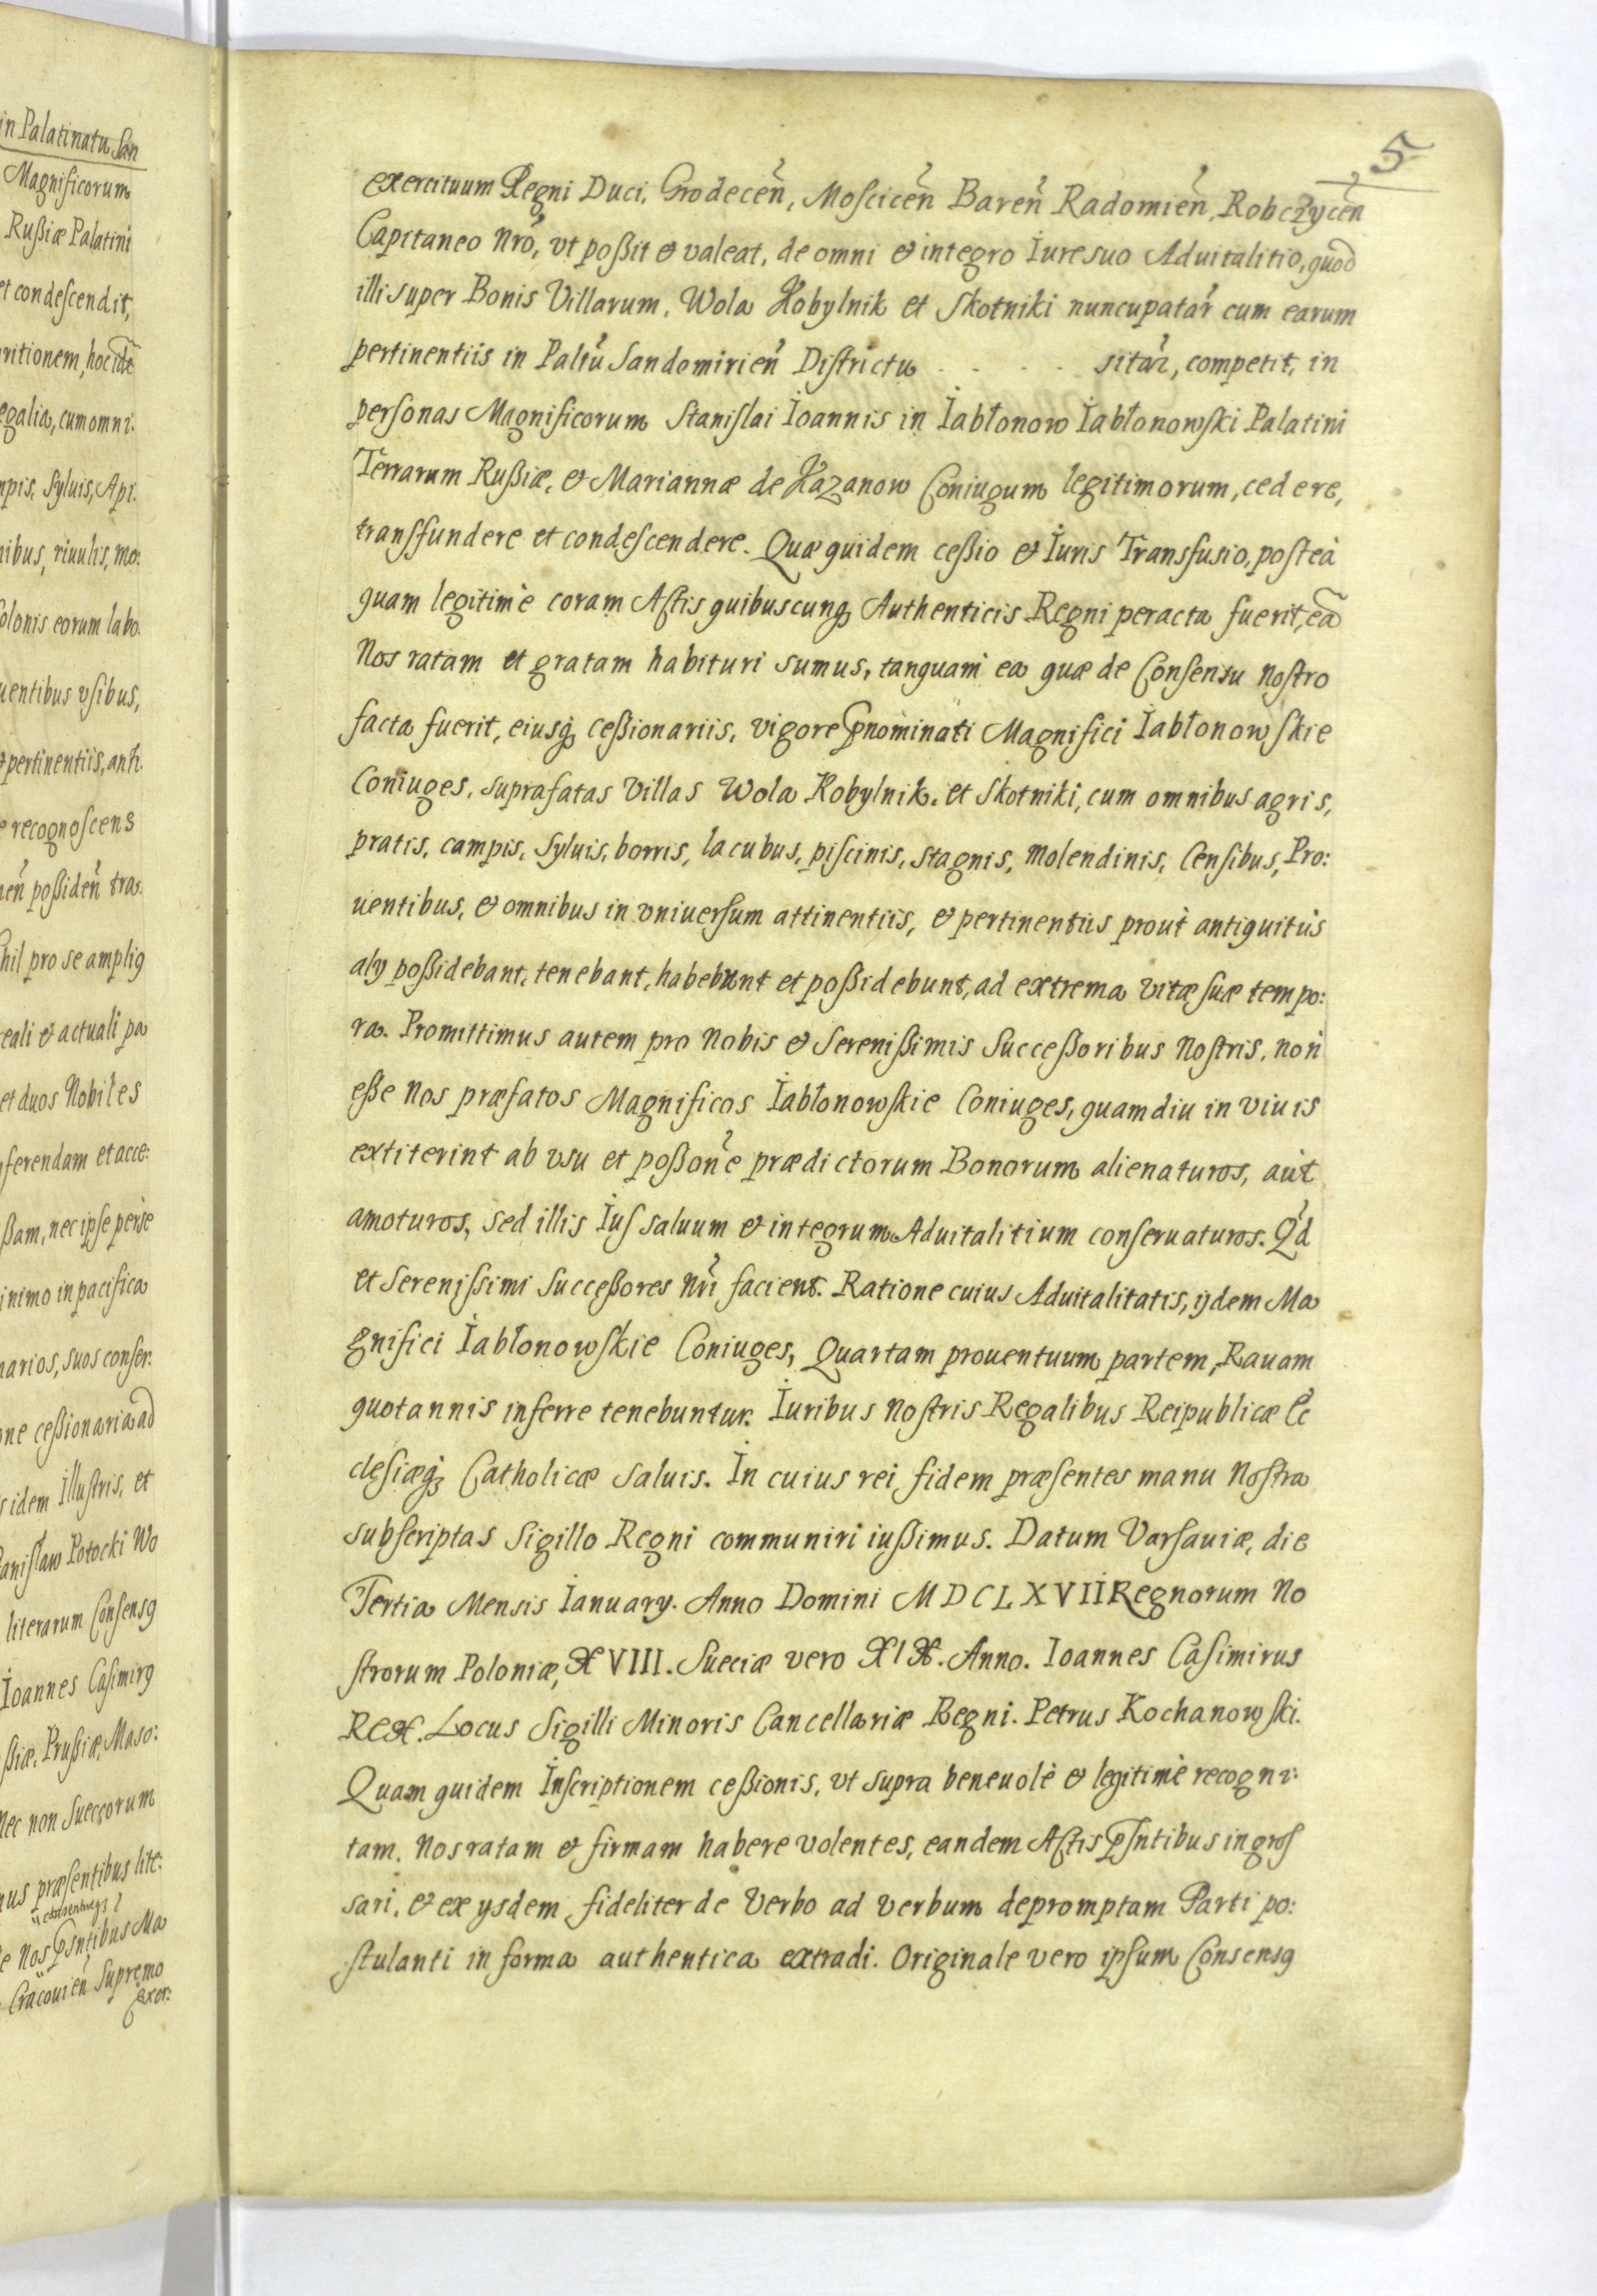 in Palatinatu San
Magnificorum
Rußiæ Palatini
et condescendit,
ritionem, hoc ide
egalia, cum omni.
mpis, Syluis, Api.
nibus, riuulis, mo:
olonis eorum labo.
uentibus vsibus,
pertinentiis, anti.
e recognoscens
en̄ poßiden̄ tras.
hil pro se ampliꝯ
eali & actuali pa
et duos Nobiles
ferendam et acce:
ßam, nec ipse per se
inimo in pacifica
narios, suos conser.
one ceßionaria ad
s idem Illustris, et
anislaw Potocki Wo
literarum Consensꝯ
Ioannes Casimirꝯ
ßiæ, Prußiæ, Maso:
Nec non Suecorum
nus præsentibus lite:
e Nos Psntibus Ma
Cracouien̄ Supremo
Exer:
5
exercituum Regni Duci, Grodecen̄, Moscicen̄ Baren̄ Radomien̄, Robczycen̄
Capitaneo Nr̄o, vt poßit & valeat, de omni & integro Iure suo Aduitalitio, quod
illi super Bonis Villarum, Wola Kobylnik et Skotniki nuncupatar̄ cum earum
pertinentiis in Paltū Sandomirien̄ Districtu . . . . sitar̄, competit, in
personas Magnificorum Stanislai Ioannis in Iabłonow Iabłonowski Palatini
Terrarum Rußiæ, & Mariannæ de Kazanow Coniugum legitimorum, cedere,
transfundere et condescendere. Quæ quidem ceßio & Iuris Transfusio, posteà
quam legitimè coram Actis quibuscunqꝫ Authenticis Regni peracta fuerit, eā
Nos ratam et gratam habituri sumus, tanquam ea quæ de Consensu nostro
facta fuerit, eiusqꝫ ceßionariis, vigore Pnominati Magnifici Iabłonowskie
Coniuges, suprafatas Villas Wola Kobylnik, et Skotniki, cum omnibus agris,
pratis, campis, Syluis, borris, lacubus, piscinis, stagnis, molendinis, Censibus, Pro:
uentibus, & omnibus in vniuersum attinentiis, & pertinentiis prout antiquitùs
alÿ poßidebant, tenebant, habebunt et poßidebunt, ad extrema vitæ suæ tempo:
ra. Promittimus autem pro Nobis & Serenißimis Succeßoribus Nostris, non
eße Nos præfatos Magnificos Iabłonowskie Coniuges, quamdiu in viuis
extiterint ab vsu et poßon̄e prædictorum Bonorum alienaturos, aut
amoturos, sed illis Ius saluum & integrum Aduitalitium conseruaturos. Qd̄
et Serenissimi Succeßores Nr̄i facient. Ratione cuius Aduitalitatis, ijdem Ma
gnifici Iabłonowskie Coniuges, Quartam prouentuum partem, Rauam
quotannis inferre tenebuntur. Iuribus Nostris Regalibus Reipublicæ Ec
clesiæqꝫ Catholicæ saluis. In cuius rei fidem præsentes manu Nostra
subscriptas Sigillo Regni communiri iußimus. Datum Varsauiæ, die
Tertia Mensis Ianuarÿ. Anno Domini MDCLXVII Regnorum No
strorum Poloniæ, XVIII. Sueciæ vero XIX. Anno. Ioannes Casimirus
REX. Locus Sigilli Minoris Cancellariæ Regni. Petrus Kochanowski.
Quam quidem Inscriptionem ceßionis, vt supra beneuolè & legitimè recogni:
tam, Nos ratam & firmam habere volentes, eandem Actis Psntibus ingros
sari, & ex ÿsdem fideliter de Verbo ad verbum depromptam Parti po:
stulanti in forma authentica extradi. Originale vero ipsum Consensꝯ